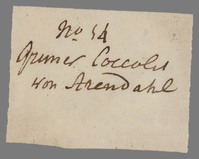 No 54
Grüner Coccolit
von Arendahl